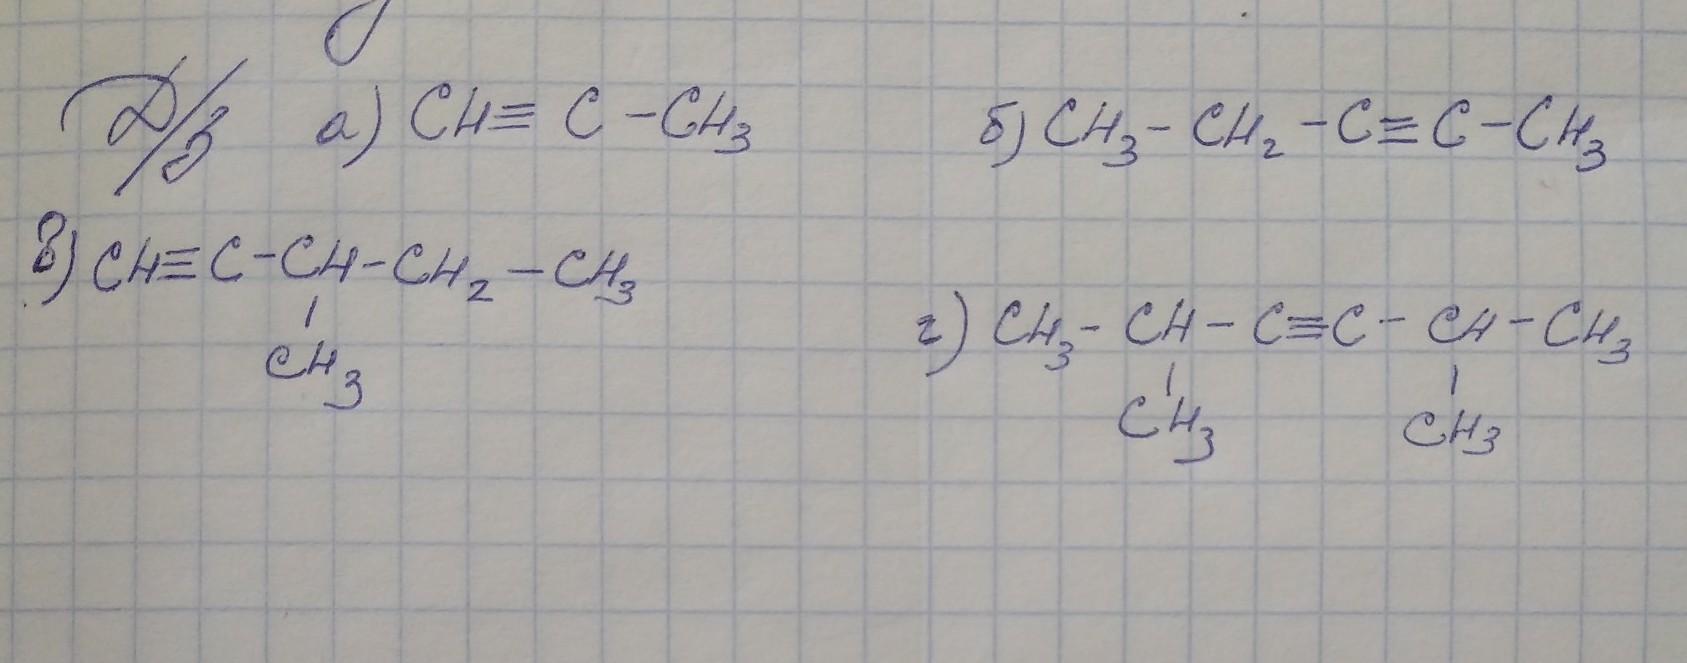 Д/З а) CH≡C-CH₃ б) CH₃-CH₂-C≡C-CH₃
в) CH≡C-CH-CH₂-CH₃
CH₃
г) CH₃-CH-C≡C-CH-CH₃
CH₃ CH₃